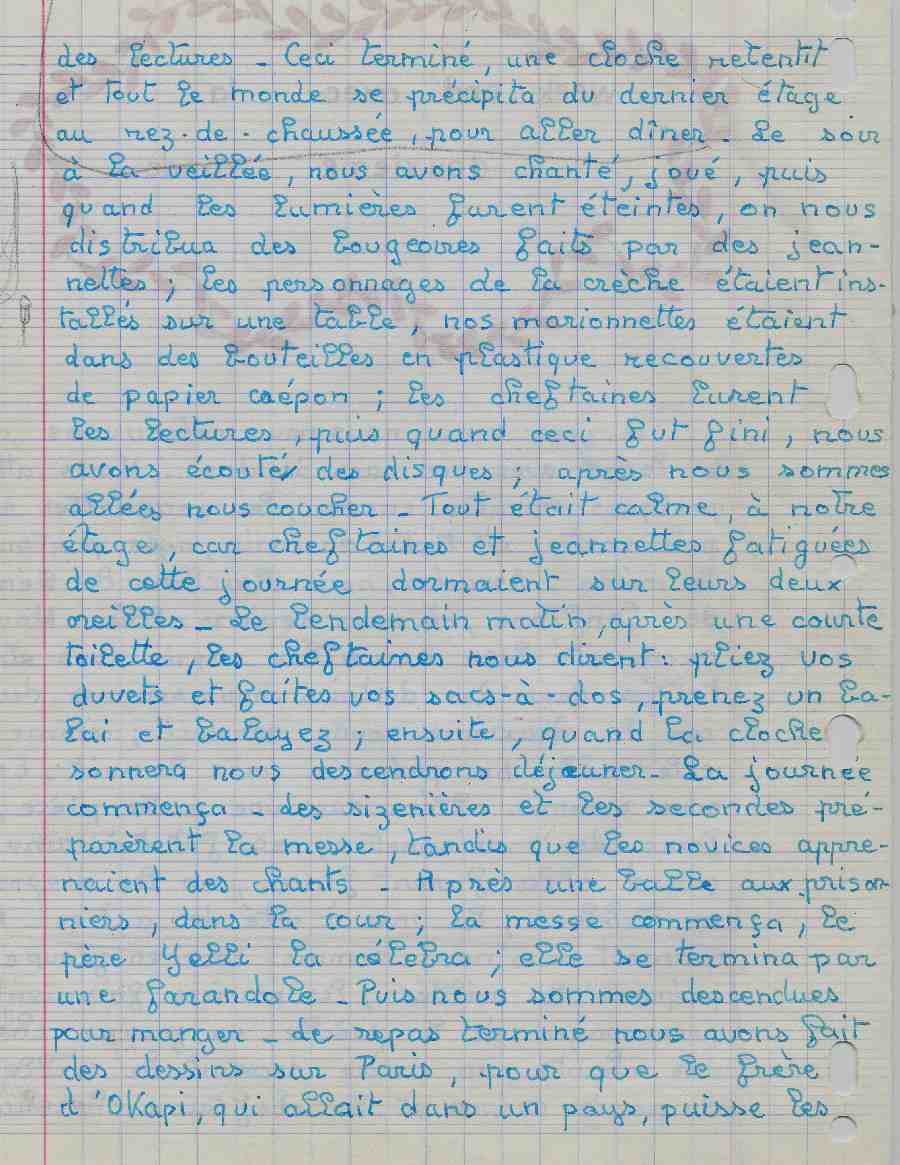 des lectures - Ceci terminé, une cloche retentit
et tout le monde se précipita du dernier étage
au rez-de-chaussée, pour aller dîner - Le soir
à la veillée, nous avons chanté, joué, puis
quand les lumières furent éteintes, on nous
distribua des bougeoires faits par des jean-
nettes ; les personnages de la crèche étaient ins-
tallés sur une table, nos marionnettes étaient
dans des bouteilles en plastique recouvertes
de papier crépon ; les cheftaines lurent
les lectures, puis quand ceci fut fini, nous
avons écouté des disques ; après nous sommes
allées nous coucher - Tout était calme, à notre
étage, car cheftaines et jeannettes fatiguées
de cette journée dormaient sur leurs deux
oreilles - Le lendemain matin, après une courte
toilette, les cheftaines nous dirent : pliez vos
duvets et faites vos sacs-à-dos, prenez un ba-
lai et balayez ; ensuite, quand la cloche
sonnera nous descendrons déjeuner - La journée
commença - des sizenières et les secondes pré-
parèrent la messe, tandis que les novices appre-
naient des chants - Après une balle aux prison-
niers, dans la cour ; la messe commença, le
père Yelli la célébra ; elle se termina par
une farandole - Puis nous sommes descendues
pour manger - de repas terminé nous avons fait
des dessins sur Paris, pour que le frère
d'OKapi, qui allait dans un pays, puisse les